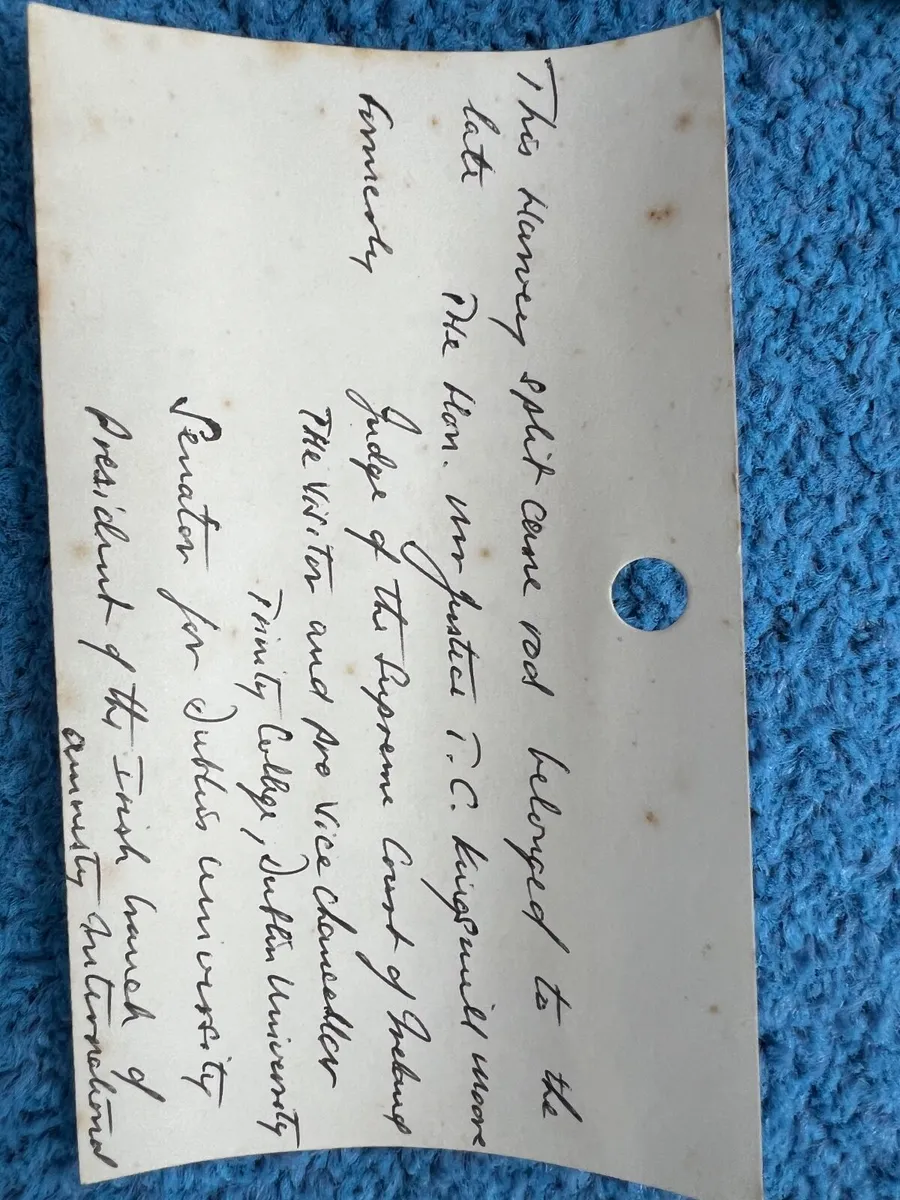 This Harvey split cane rod belonged to the
late The Hon. Mr Justice T.C. Kingsmill Moore
formerly Judge of the Supreme Court of Ireland
THE Visitor and Pro Vice Chancellor
Trinity College, Dublin University
Senator for Dublin University
President of the Irish branch of
amnesty International